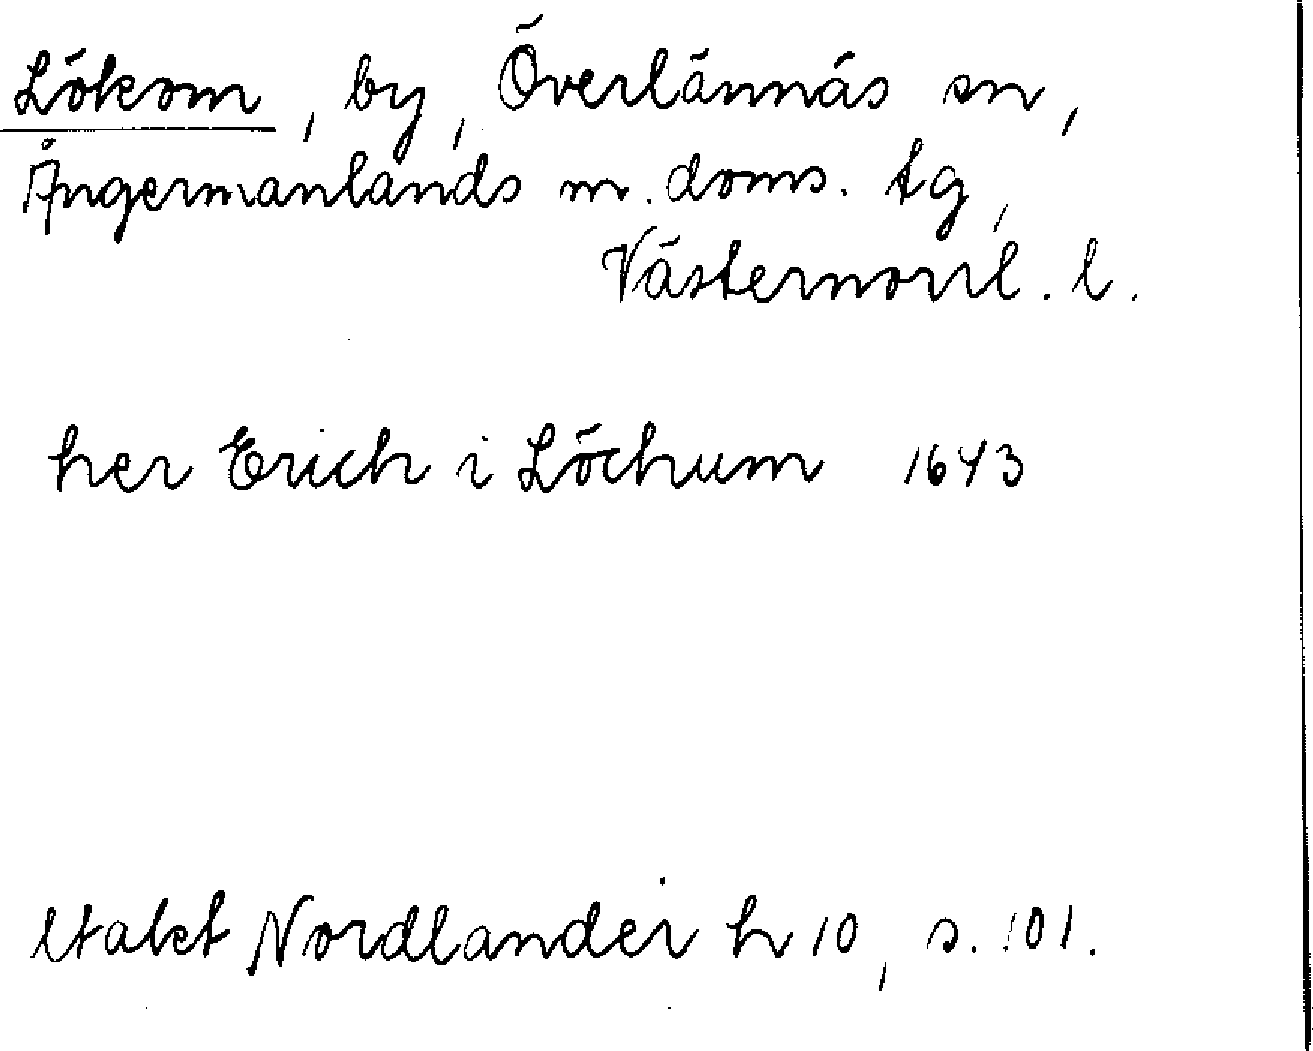 Lökom, by, Överlännäs sn,
Ångermanlands m. doms. tg,
Västernorrl. l.
her Erich i Löchum 1643
Utabet Nordlander h 10, s. 101.